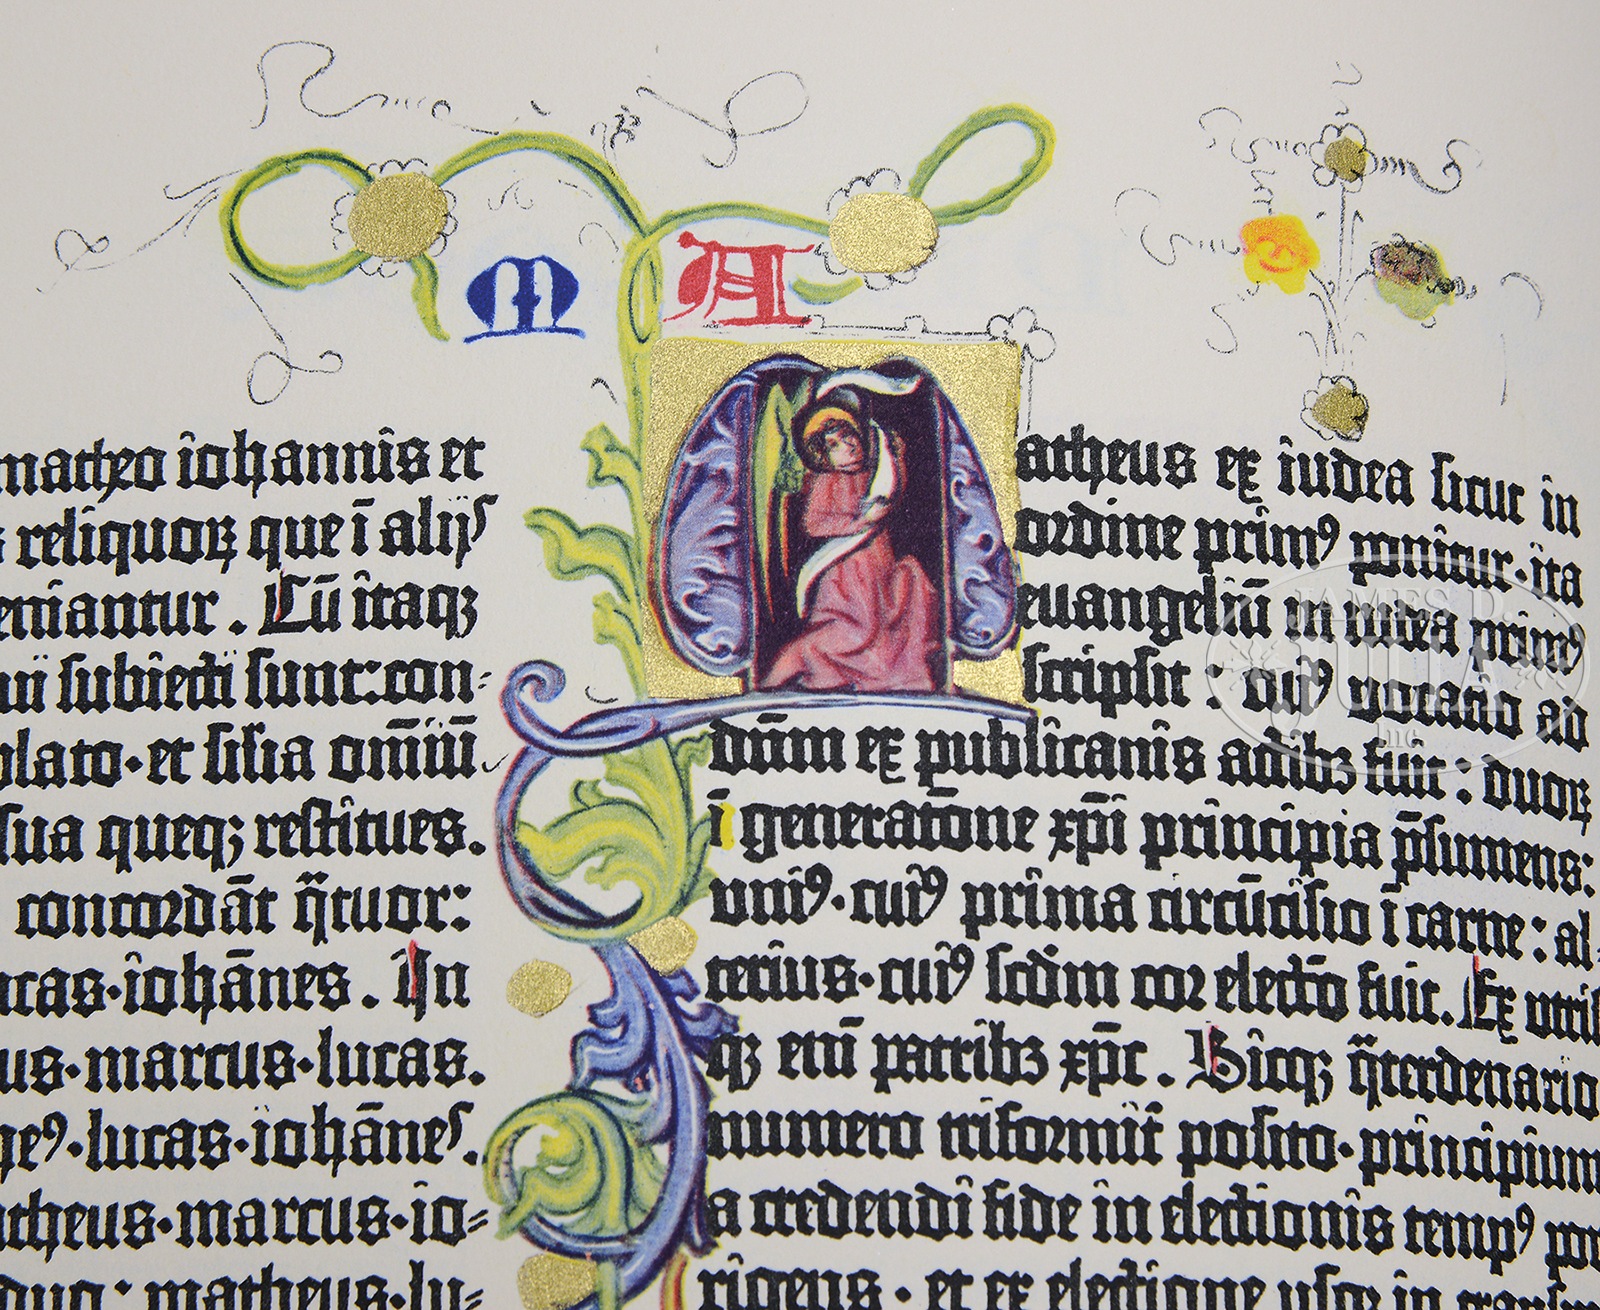 m A
matheo iohannis et
reliquoꝝ que ī aliis
eniantur. Cū itaqꝫ
subiecti sunt: con-
plato. et silia om̄iū
sua queqꝫ restitues.
concordāt q̄tuor:
ucas. iohānes. In
us. marcus. lucas.
heꝰ. lucas. iohānes.
atheus. marcus. io-
duo: matheus. lu-
Matheus ex iudea sicut in
ordine primꝰ ponitur. ita
euangeliū in iudea primꝰ
scripsit: cuiꝰ vocatio ad
dn̄m ex publicanis actibꝫ fuit: duoꝝ
ī generatōne xp̄i principia p̄sumens:
uniꝰ. cuiꝰ prima circūcisio ī carne: al-
terius. cuiꝰ scd̄m cor electō fuit. Ex utris
qꝫ enī patribꝫ xp̄c. Sicqꝫ q̄terdenario
numero trisormit̄ posito. principium
a credendi fide in electionis tempꝰ por
rigens. et ex electione usqꝫ in
JAMES D. JULIA Inc.